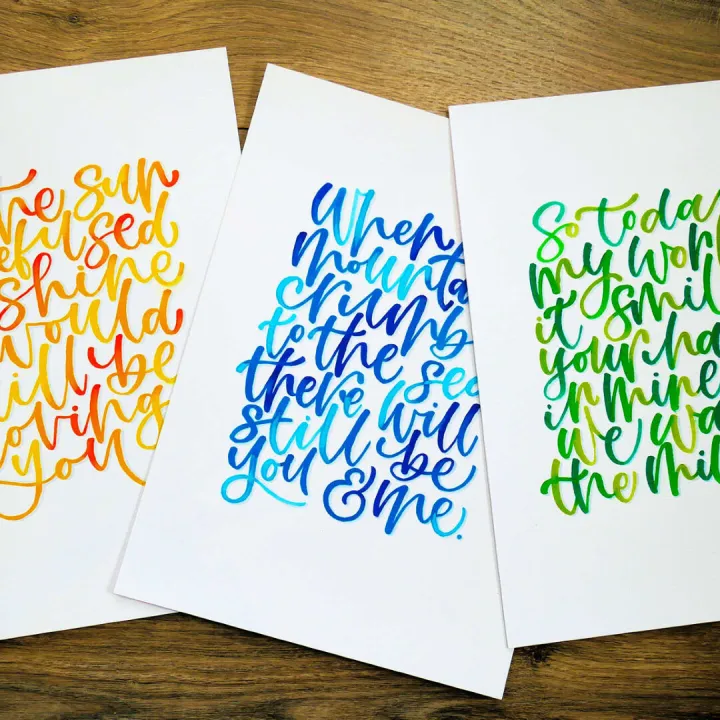 the sun
efused
shine
would
till be
oving
you
When
mounta
crumb
to the sea
there will
still be
you & me.
So today
my worl
it smil
your ha
in mine
we wa
the mil